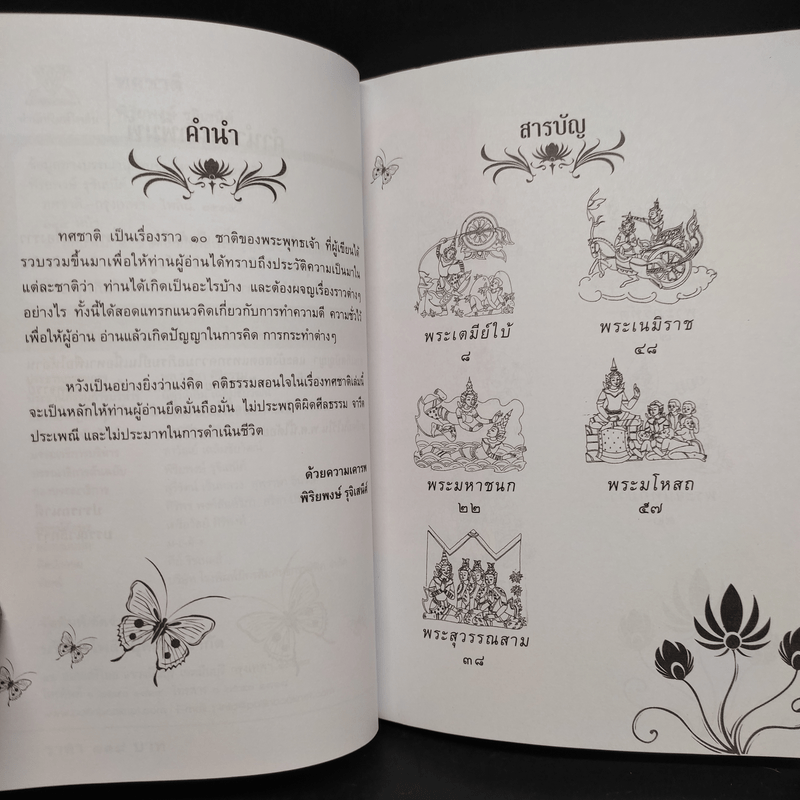 คำนำ
ทศชาติ เป็นเรื่องราว ๑๐ ชาติของพระพุทธเจ้า ที่ผู้เขียนได้
รวบรวมขึ้นมาเพื่อให้ท่านผู้อ่านได้ทราบถึงประวัติความเป็นมาใน
แต่ละชาติว่า ท่านได้เกิดเป็นอะไรบ้าง และต้องผจญเรื่องราวต่างๆ
อย่างไร ทั้งนี้ได้สอดแทรกแนวคิดเกี่ยวกับการทำความดี ความชั่วไว้
เพื่อให้ผู้อ่าน อ่านแล้วเกิดปัญญาในการคิด การกระทำต่างๆ
หวังเป็นอย่างยิ่งว่าแง่คิด คติธรรมสอนใจในเรื่องทศชาติเล่มนี้
จะเป็นหลักให้ท่านผู้อ่านยึดมั่นถือมั่น ไม่ประพฤติผิดศีลธรรม จารีต
ประเพณี และไม่ประมาทในการดำเนินชีวิต
ด้วยความเคารพ
พิริยพงษ์
สารบัญ
พระเตมีย์ใบ้
๘
พระเนมิราช
๔๘
พระมหาชนก
๒๒
พระมโหสถ
๕๗
พระสุวรรณสาม
๓๘